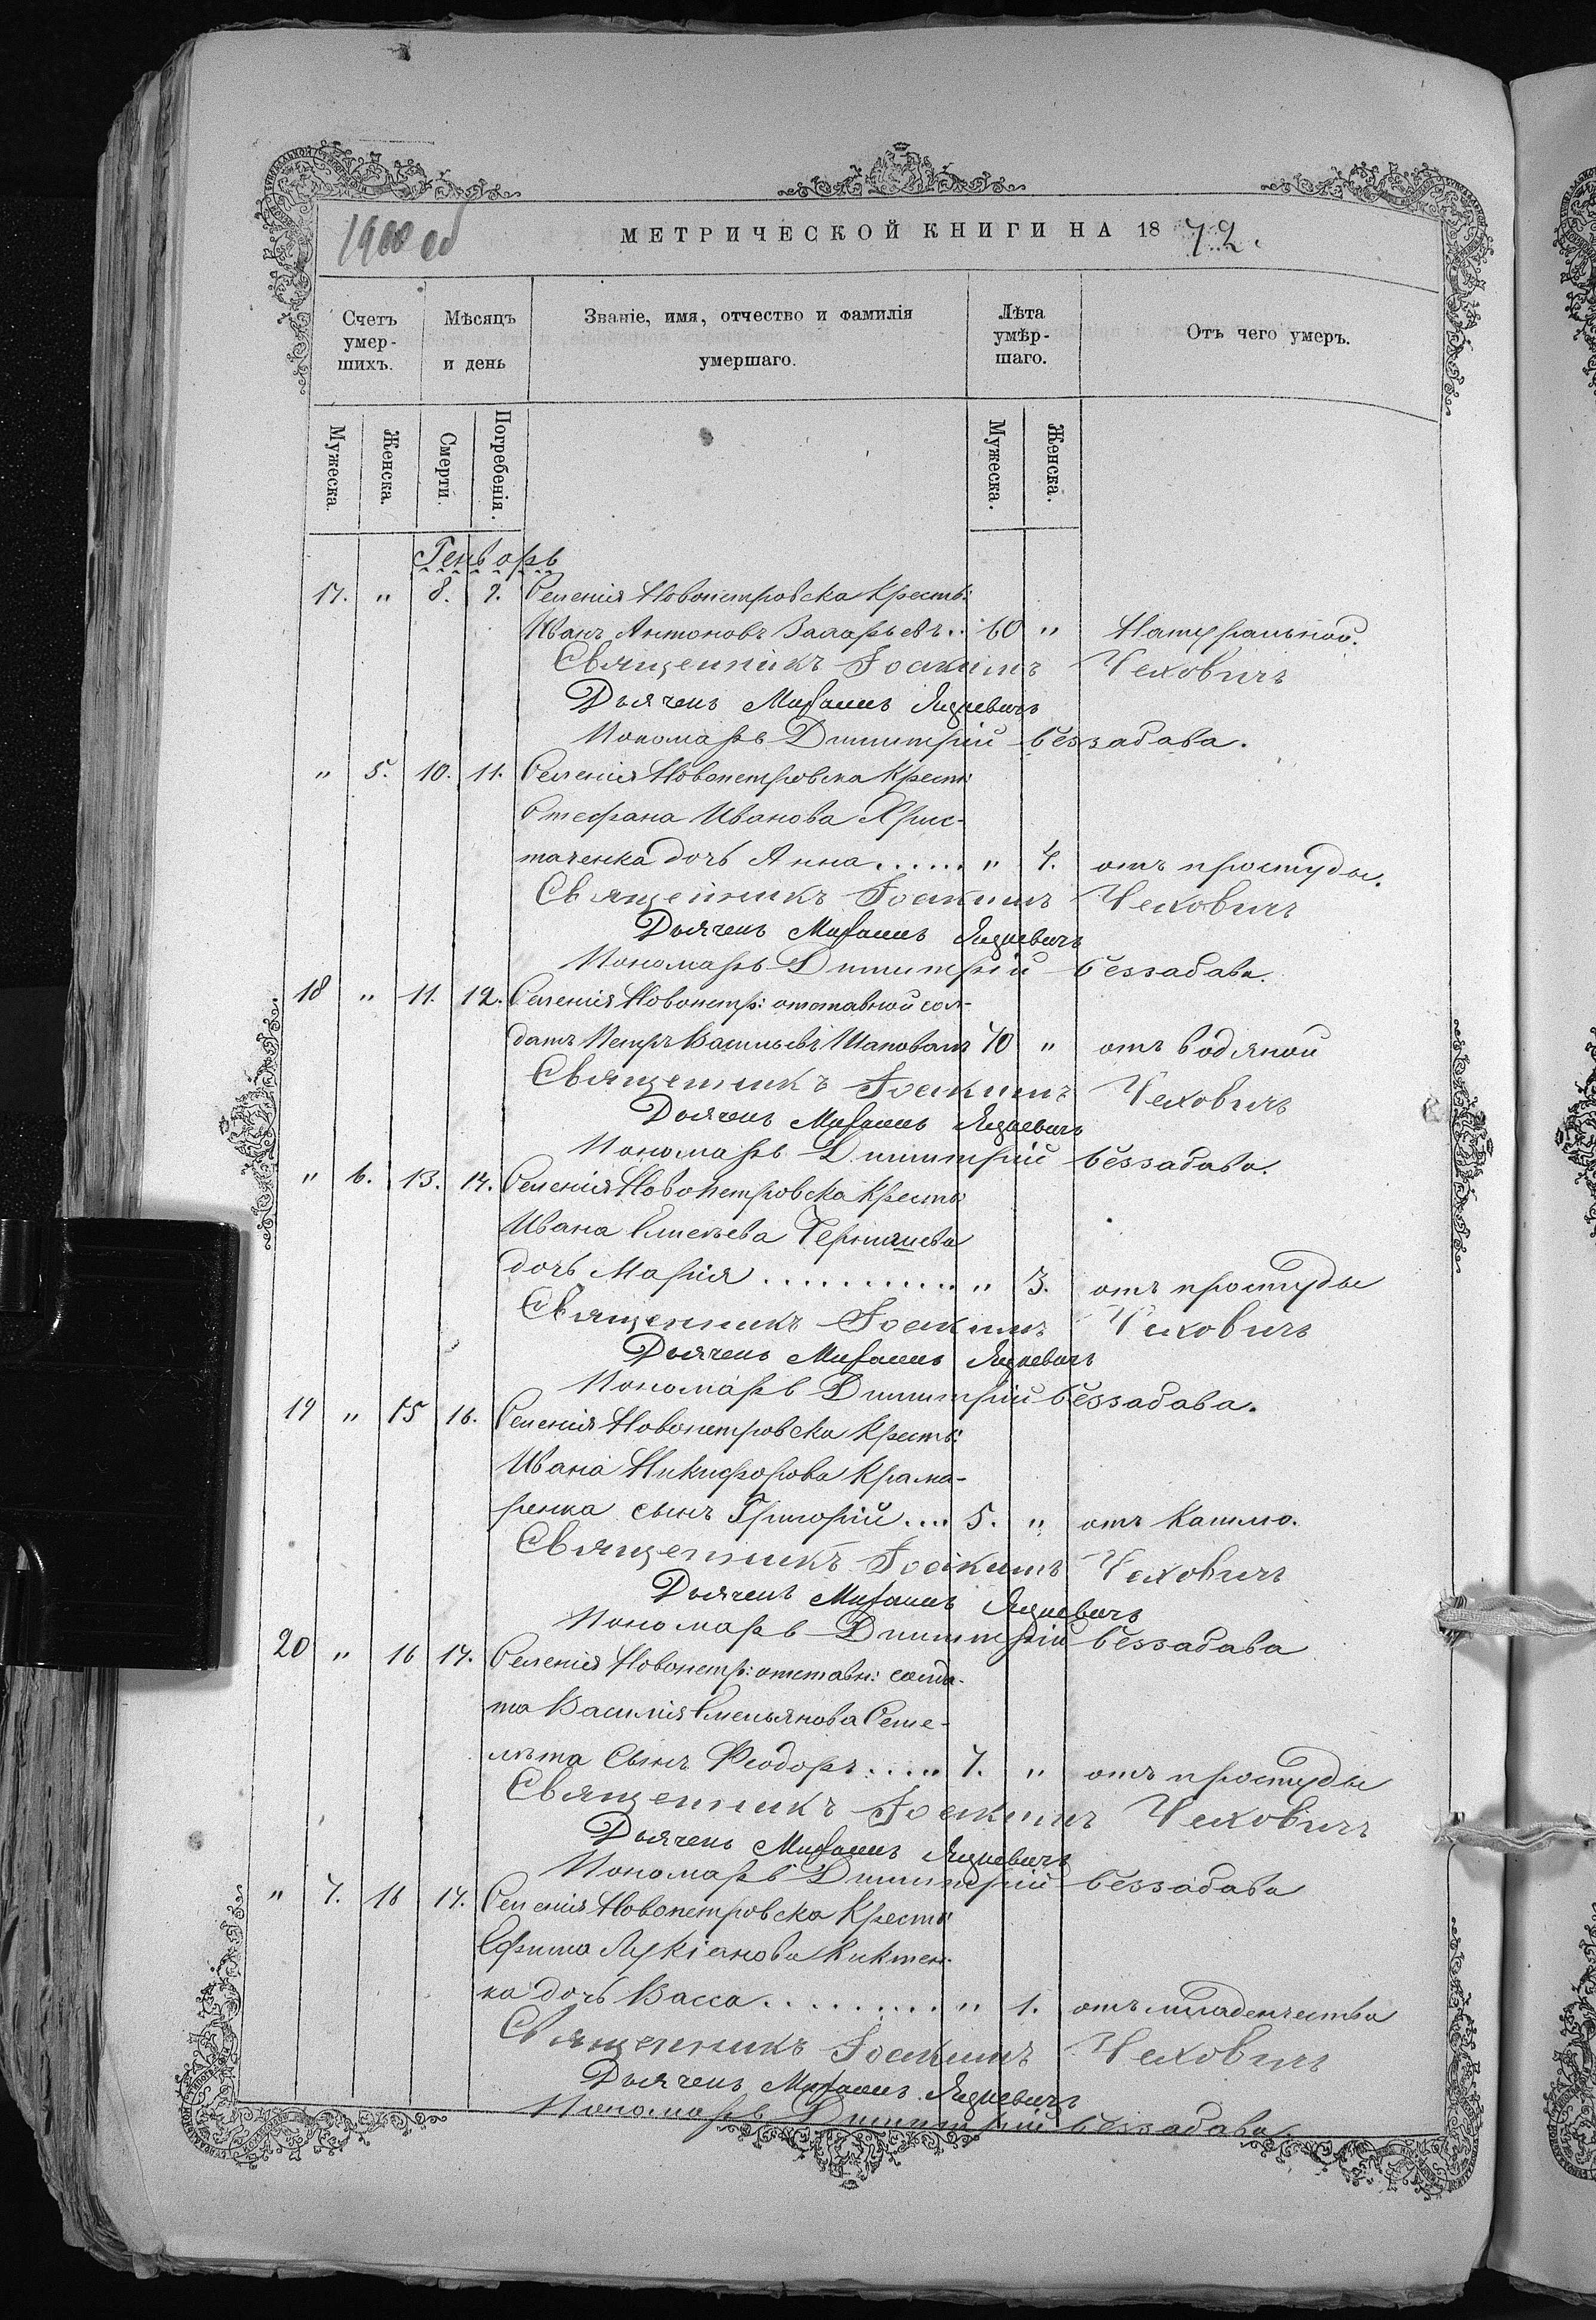 1900 об
МЕТРИЧЕСКОЙ КНИГИ НА 1872.
Счетъ умер-шихъ. Мѣсяцъ и день Званіе, имя, отчество и фамилія умершаго. Лѣта умѣр-шаго. Отъ чего умеръ.
Мужеска. Женска. Смерти. Погребенія. Мужеска. Женска.
Генварь
17. " 8. 9. Селенія Новопетровска Кресть:
Иванъ Антоновъ .. 60 " Натуральной.
Священникъ Іоакимъ Чехович
Дьячекъ Михаилъ
Пономарь Димитрій Беззабава.
" 5. 10. 11. Селенія Новопетровска Кресть:
Стефана Иванова Хрис-
таченка дочь Анна...... " 4. отъ простуды.
Священникъ Іоакимъ Чеховичъ
Дьячекъ Михаилъ
Пономарь Димитрій Беззабава.
18 " 11. 12. Селенія Новопетр: отставной сол-
датъ Петръ Васильевъ Шаповалъ 70 " отъ водяной
Священникъ Іоакимъ Чеховичъ
Дьячекъ Михаилъ
Пономарь Димитрій Беззабава.
" 6. 13. 14. Селенія Новопетровска Кресть:
Ивана Елисеева
дочь Марія ............ " 3. отъ простуды
Священникъ Іоакимъ Чеховичъ
Дьячекъ Михаилъ
Пономарь Димитрій Беззабава.
19 " 15 16. Селенія Новопетровска Кресть:
Ивана Никифорова Крама-
ренка сынъ Григорій.... 5. " отъ Кашлю.
Священникъ Іоакимъ Чеховичъ
Дьячекъ Михаилъ
Пономарь Димитрій Беззабава
20 " 16 17. Селенія Новопетр: отставн: солда-
та Василія Емельянова Семе-
лита Сынъ Феодоръ..... 7. " отъ простуды
Священникъ Іоакимъ Чеховичъ
Дьячекъ Михаилъ
Пономарь Димитрій Беззабава
" 7. 16 17. Селенія Новопетровска Кресть:
Ефима Лукіанова Киктен-
ка дочь Васса.......... " 1. отъ младенчества
Священникъ Іоакимъ Чеховичъ
Дьячекъ Михаилъ
Пономарь Димитрій Беззабава.